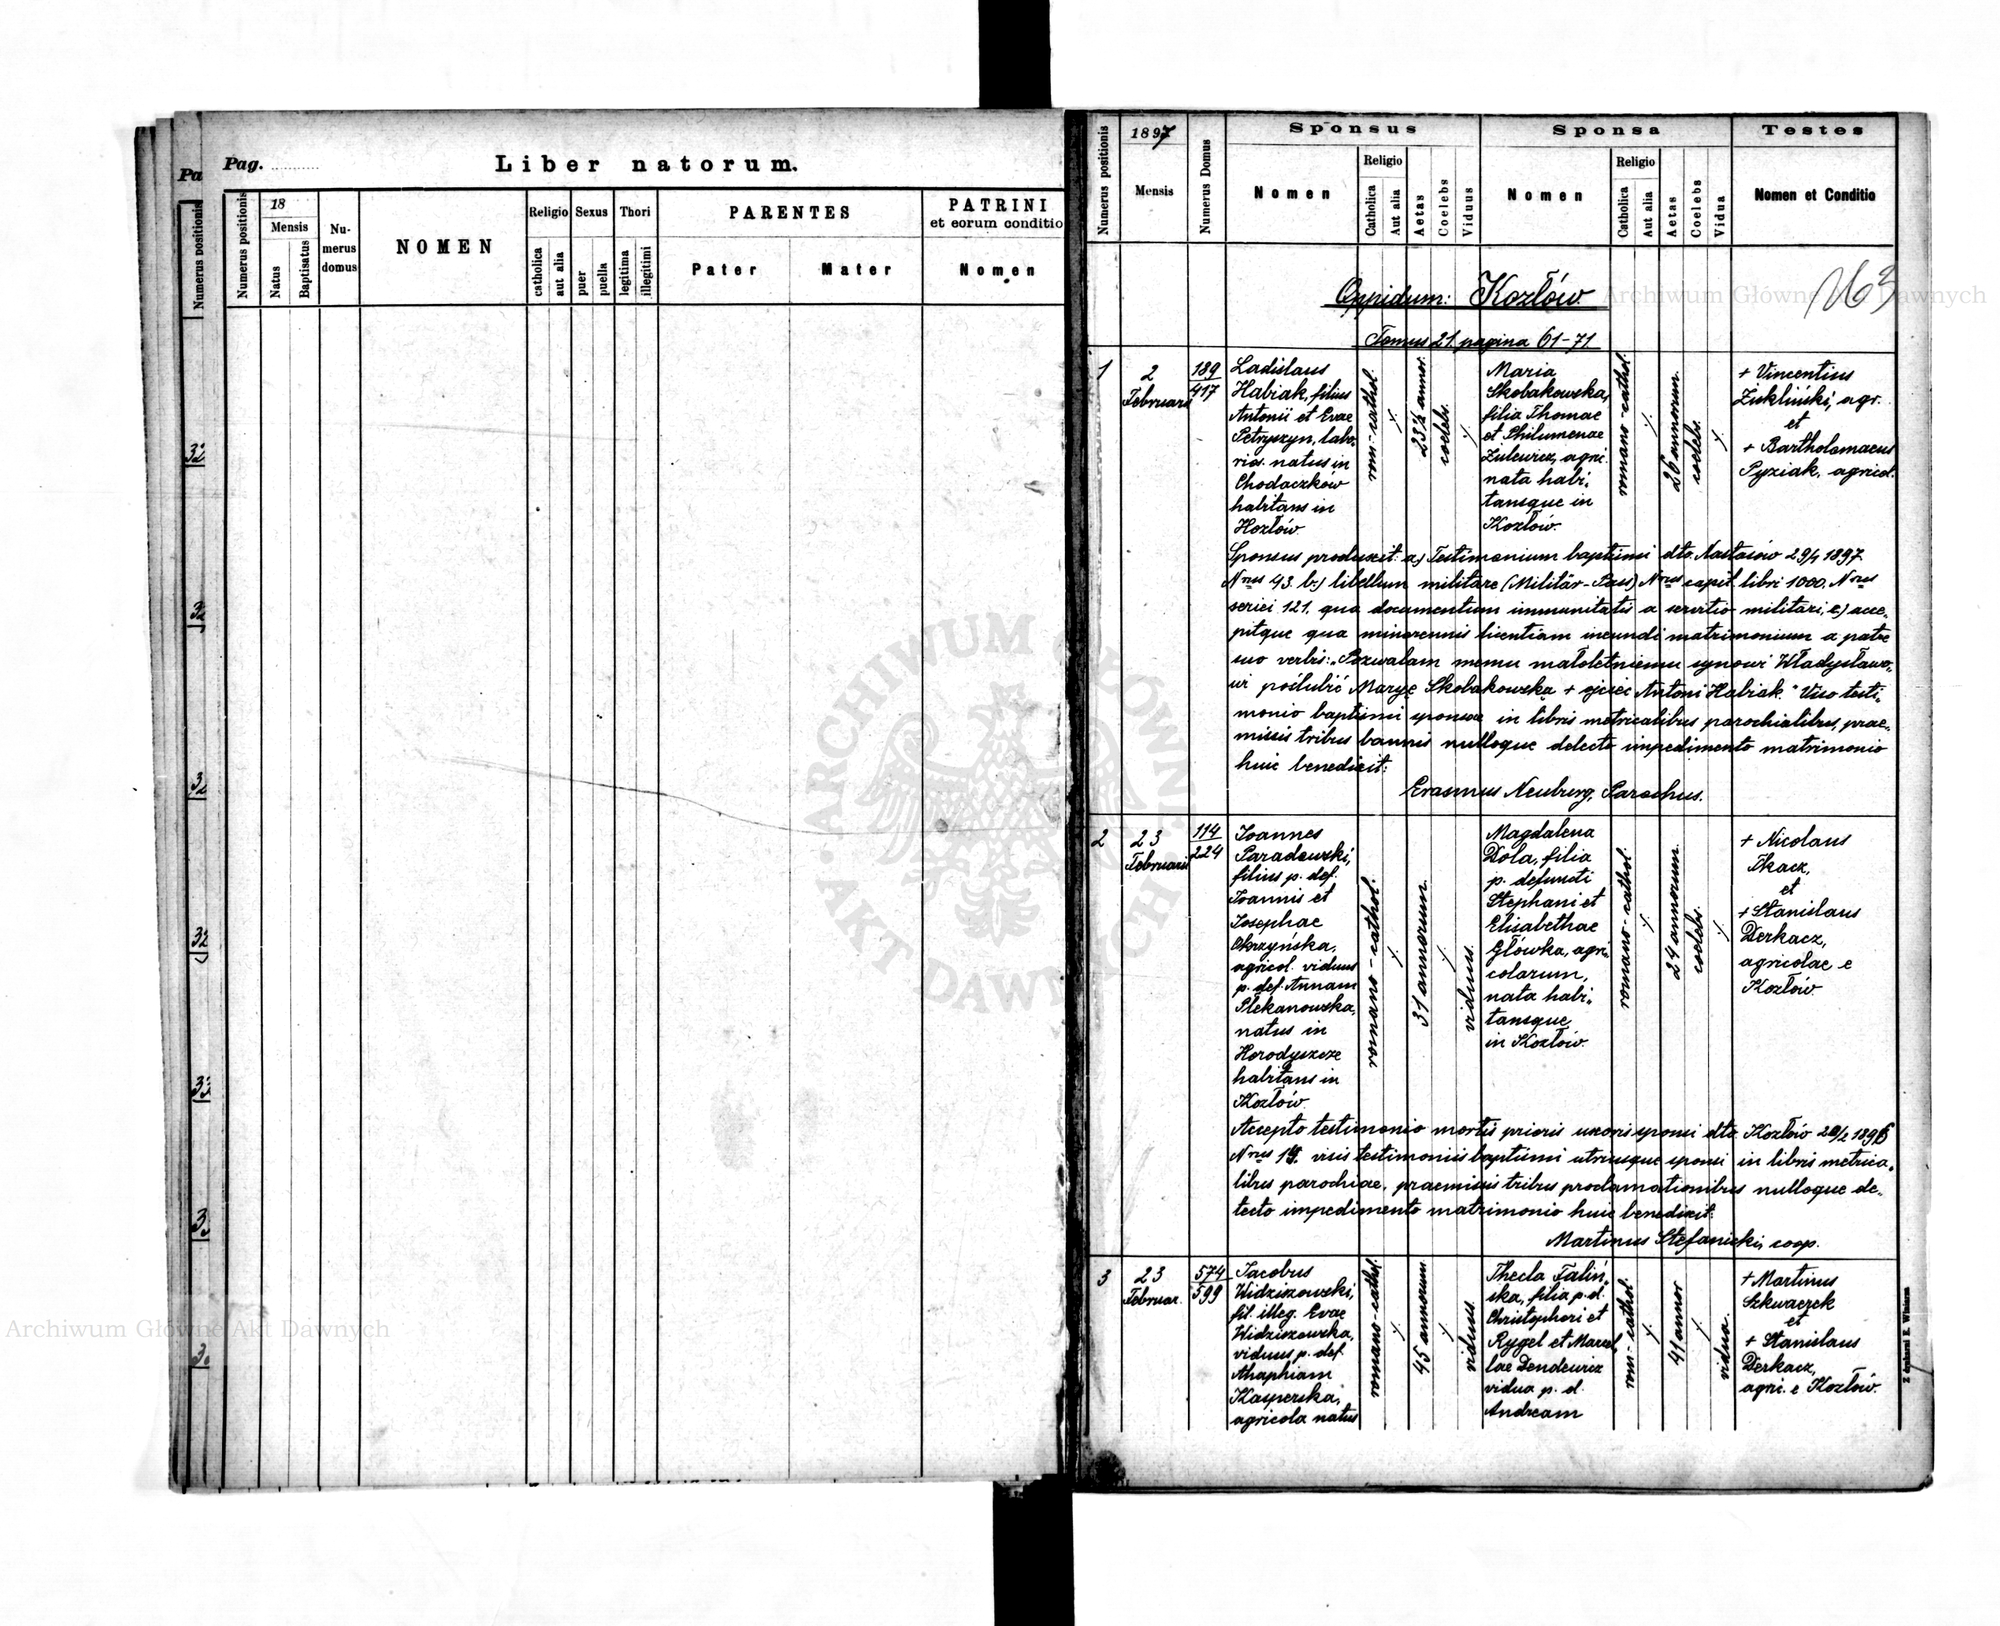 Pa
Numerus positionis
32
32
32
32
33
3
3
Pag.
Liber natorum.
Numerus positionis
18
Mensis
Natus
Baptisatus
Nu-
merus
domus
NOMEN
Religio
catholica
aut alia
Sexus
puer
puella
Thori
legitima
illegitimi
PARENTES
Pater
Mater
PATRINI
et eorum conditio
Nomen
Numerus positionis
1897
Mensis
Numerus Domus
Sponsus
Nomen
Religio
Catholica
Aut alia
Aetas
Coelebs
Viduus
Sponsa
Nomen
Religio
Catholica
Aut alia
Aetas
Coelebs
Vidua
Testes
Nomen et Conditio
Oppidum: Kozłów
163
Tomus 21. pagina 61-71
1
2
Februarii
189
417
Ladislaus
Habiak, filius
Antonii et Evae
Petryszyn, labo-
rios. natus in
Chodaczków
habitans in
Kozłów
rom.-cathol.
23½ annor.
coelebs.
Maria
Skobakowska,
filia Thomae
et Philumenae
Zulewicz, agric.
nata habi-
tansque in
Kozłów.
romano-cathol.
26 annorum.
coelebs.
+ Vincentius
agr.
et
+ Bartholomaeus
Pyziak, agricol.
Sponsus produxit: a) Testimonium baptismi dto. Nastasów 29/1 1897.
Nrus 43. b) libellum militare (Militär-Pass) Nrus capit. libri 1000. Nrus
seriei 121. qua documentum immunitatis a servitio militari, c) acce-
pitque qua minorennis licentiam ineundi matrimonium a patre
suo verbis: „Pozwalam memu małoletniemu synowi Władysławo-
wi poślubić Maryę Skobakowska + ojciec Antoni Habiak." Viso testi-
monio baptismi sponsae in libris metricalibus parochialibus, prae-
missis tribus bannis nulloque detecto impedimento matrimonio
huic benedixit:
Erasmus Neuberg, Parochus.
2
23
Februarii
114
224
Joannes
Paradowski,
filius p. def.
Joannis et
Josephae
Okrzyńska,
agricol. viduus
p. def. Annam
Plekanowska,
natus in
Horodyszcze
habitans in
Kozłów.
romano-cathol.
31 annorum.
viduus.
Magdalena
Dola, filia
p. defuncti
Stephani et
Elisabethae
Główka, agri-
colarum,
nata habi-
tansque
in Kozłów.
romano-cathol.
24 annorum.
coelebs.
+ Nicolaus
Tkacz,
et
+ Stanislaus
Derkacz,
agricolae e
Kozłów.
Accepto testimonio mortis prioris uxoris sponsi dto. Kozłów 1896
Nrus visis testimoniis baptismi utriusque sponsi in libris metrica-
libus parochiae, praemissis tribus proclamationibus nulloque de-
tecto impedimento matrimonio huic benedixit:
Martinus Stefanicki, coop.
3
23
Februar.
574
599
Jacobus
Widziszowski,
fil. illeg. Evae
Widziszowska,
viduus p. def.
Ahaphiam
Kasperska,
agricola natus
romano-cathol.
45 annorum
viduus.
Thecla Taliń-
ska, filia p. d.
Christophori et
Rygel et Marcel-
lae Dendewicz
vidua p. d.
Andream
rom-cathol.
41 annor
vidua.
+ Martinus
Szkwarek
et
+ Stanislaus
Derkacz,
agric. e Kozłów.
Z drukarni E. Winiarza
Archiwum Główne Akt Dawnych
Archiwum Główne Akt Dawnych
ARCHIWUM GŁÓWNE
AKT DAWNYCH